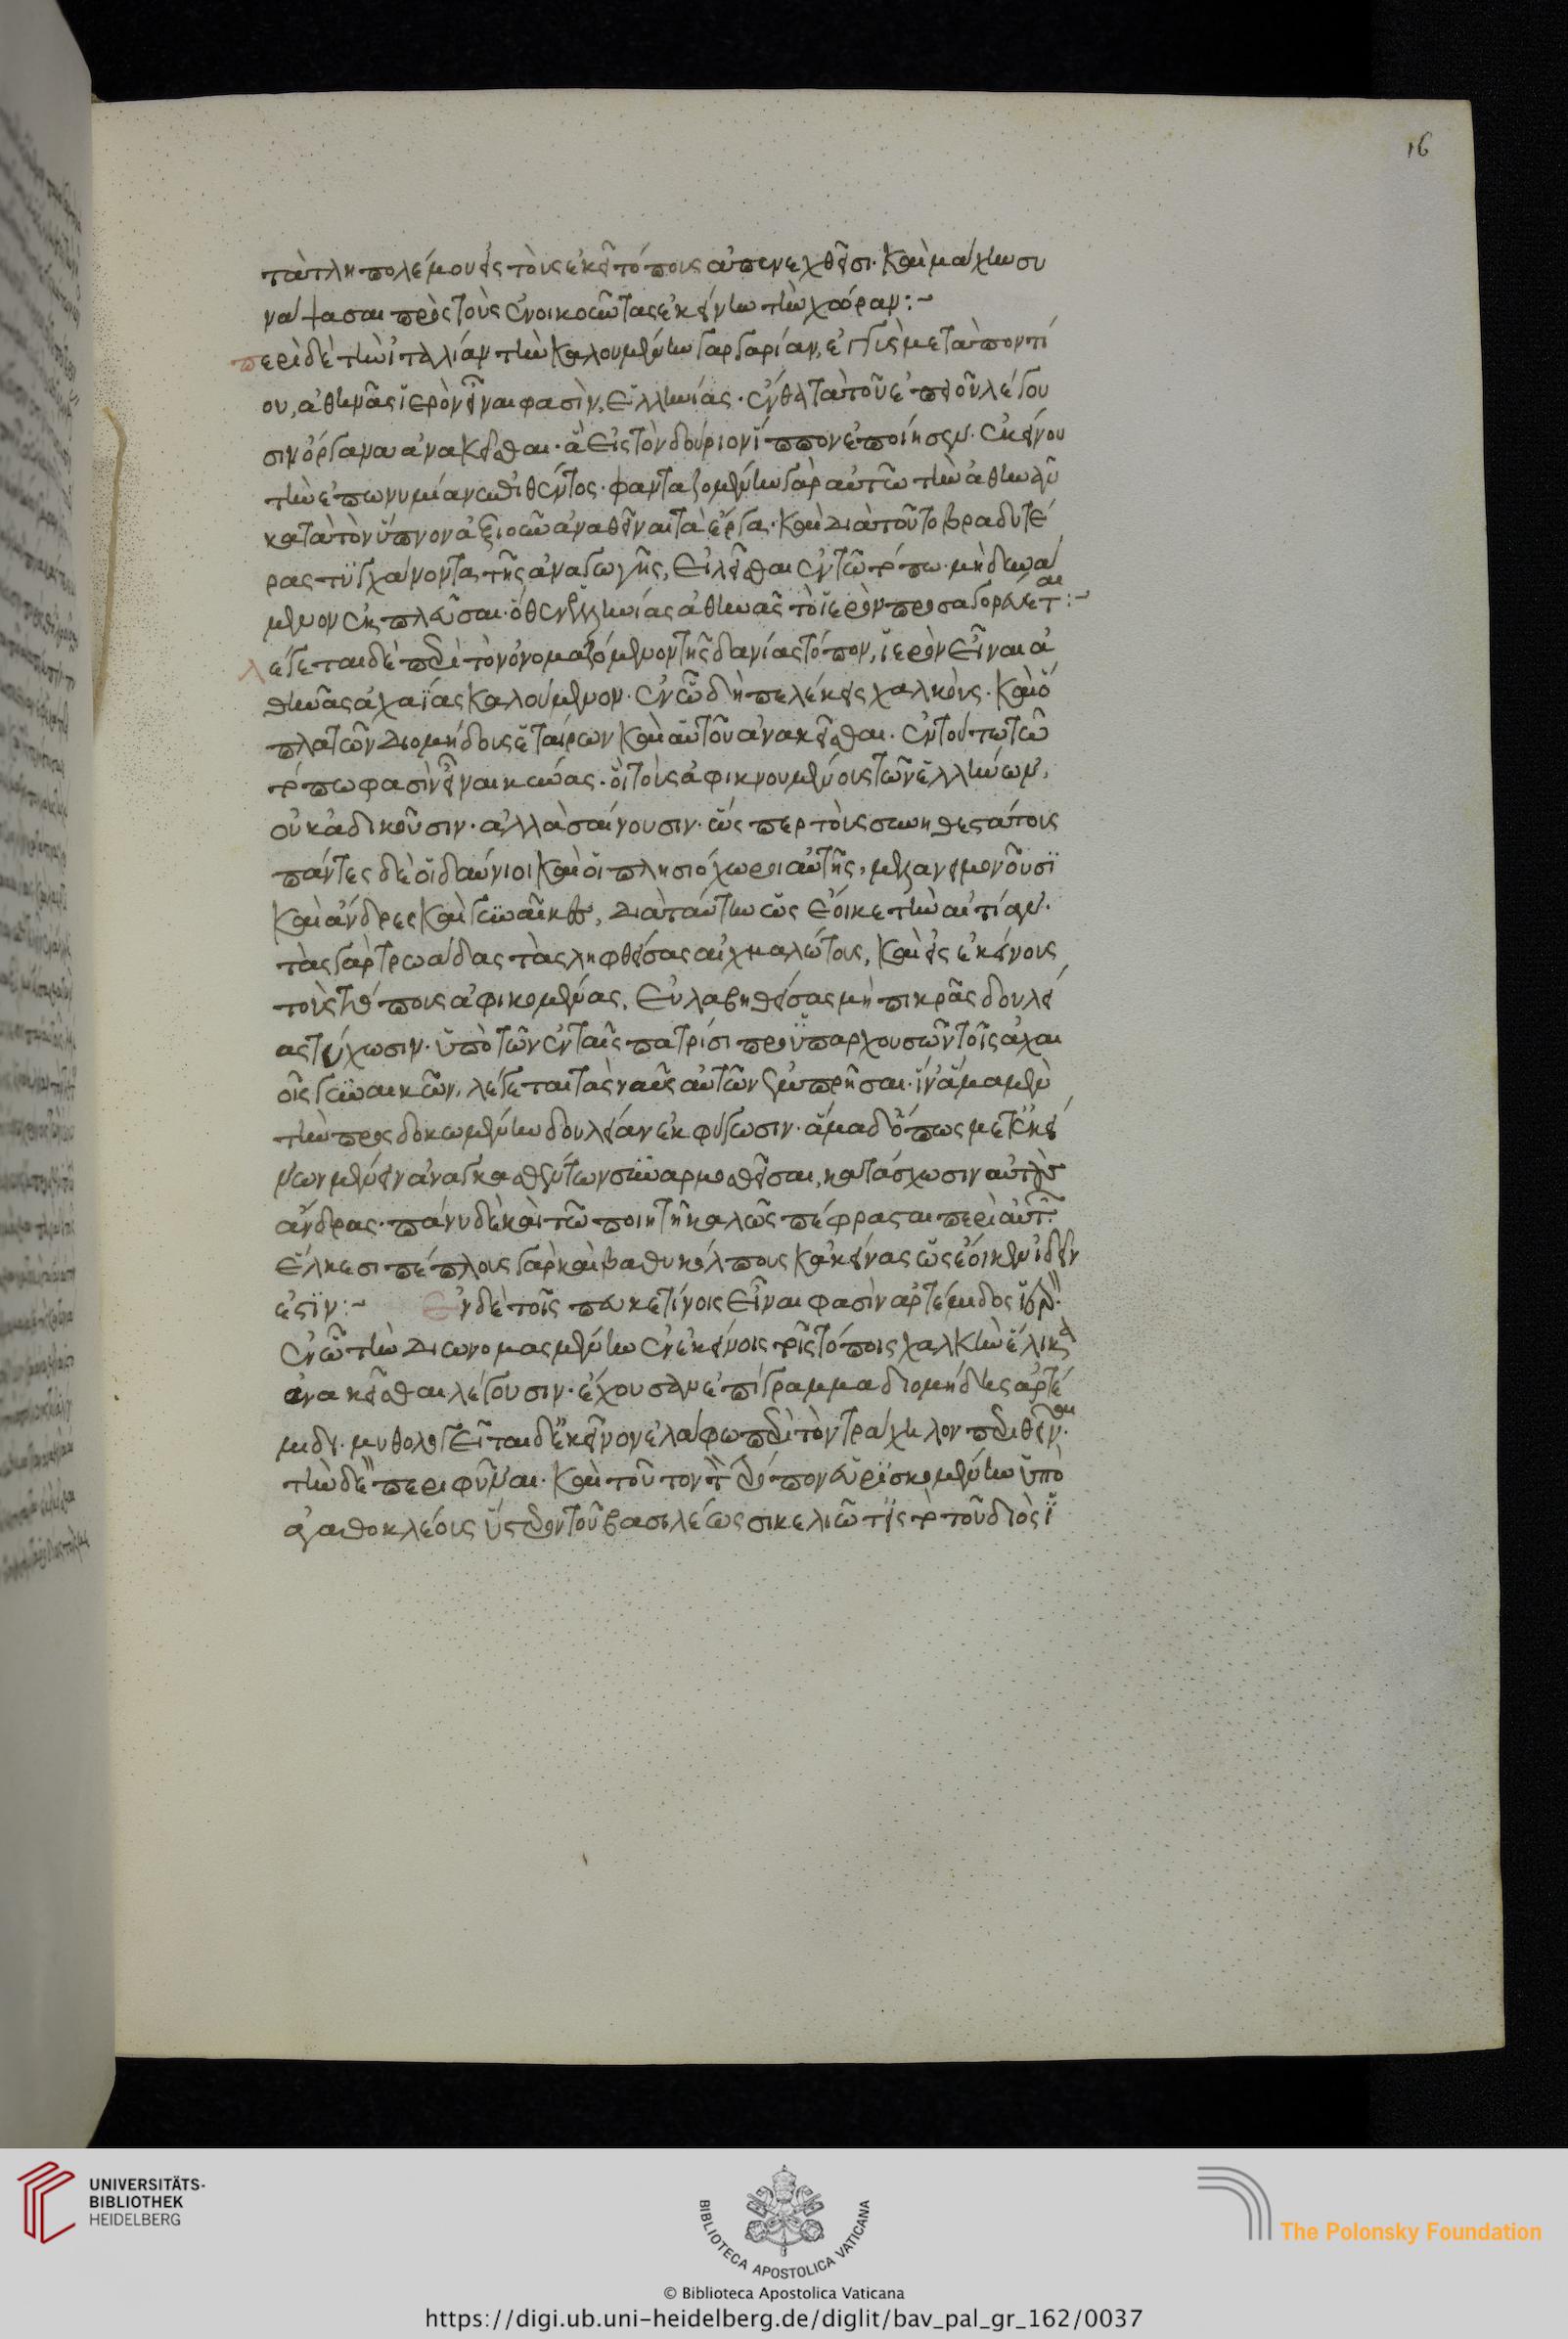 16
τὰ τληπολέμου εἰς τοὺς ἐκεῖ τόπους ἀπενεχθεῖσι. καὶ μάχην συ
νάψασαι πρὸς τοὺς ἐνοικοῦντας ἐκείνην τὴν χώραν:~
περὶ δὲ τὴν ἰταλίαν τὴν καλουμένην γαργαρίαν, ἐγγὺς μεταποντί
ου, ἀθηνᾶς ἱερὸν εἶναι φασὶν, ἑλληνίας. ἔνθα τὰ τοῦ ἐπειοῦ λέγου
σιν ὄργανα ἀνακεῖσθαι. ἃ εἰς τὸν δούριον ἵππον ἐποίησεν. ἐκείνου
τὴν ἐπωνυμίαν ἐπιθέντος. φανταζομένην γὰρ αὐτῶ τὴν ἀθηνᾶν
κατὰ τὸν ὕπνον ἀξιοῦν ἀναθεῖναι τὰ ἔργα. καὶ διὰ τοῦτο βραδυτέ
ρας τυγχάνοντα τῆς ἀναγωγῆς, εἱλεῖσθαι ἐν τῶ τόπω. μὴ δυνά
μενον ἐκπλεῦσαι. ὅθεν ἑλληνίας ἀθηνᾶς τὸ ἱερὸν προσαγορεύεται:~
λέγεται δὲ περὶ τὸν ὀνομαζόμενον τῆς δανίας τόπον, ἱερὸν εἶναι ἀ
θηνᾶς ἀχαΐας καλούμενον. ἐν ᾧ δὴ πελέκεις χαλκοὺς. καὶ ὅ
πλα τῶν διομήδους ἑταίρων καὶ αὐτοῦ ἀνακεῖσθαι. ἐν τούτω τῶ
τόπω φασὶν εἶναι κύνας. οἳ τοὺς ἀφικνουμένους τῶν ἑλλήνων,
οὐκ ἀδικοῦσιν. ἀλλὰ σαίνουσιν. ὥσπερ τοὺς συνηθεστάτους
πάντες δὲ οἱ δαύνιοι καὶ οἱ πλησιόχωροι αὐτῆς, μελανειμονοῦσϊ
καὶ ἄνδρες καὶ γυναῖκες, διὰ ταύτην ὡς ἔοικε τὴν αἰτίαν.
τὰς γὰρ τρωάδας τὰς ληφθείσας αἰχμαλώτους, καὶ εἰς ἐκείνους
τοὺς τόπους ἀφικομένας, εὐλαβηθείσας μὴ πικρᾶς δουλεί
ας τύχωσιν. ὑπὸ τῶν ἐν ταῖς πατρίσι προϋπαρχουσῶν τοῖς ἀχαι
οῖς γυναικῶν, λέγεται τὰς ναῦς αὐτῶν ἐμπρῆσαι. ἵν' ἅμα μὲν
τὴν προσδοκωμένην δουλείαν ἐκφύγωσιν. ἅμα δ' ὅπως μετ' ἐκεί
νων μένειν ἀναγκασθέντων συναρμοσθεῖσαι, κατάσχωσιν αὐτοὺς
ἄνδρας. πάνυ δὲ καὶ τῶ ποιητῆ καλῶς πέφρασται περὶ αὐτῶν.
ἑλκεσιπέπλους γὰρ καὶ βαθυκόλπους κἀκείνας ὡς ἔοικεν ἰδεῖν
ἐστϊν:~ ἐν δὲ τοῖς πευκετίνοις εἶναι φασὶν ἀρτέμιδος ἱερόν.
ἐν ᾧ τὴν διωνομασμένην ἐν ἐκείνοις τοῖς τόποις χαλκῆν ἕλικα
ἀνακεῖσθαι λέγουσιν. ἔχουσαν ἐπίγραμμα διομήδης ἀρτέ
μιδι. μυθολογεῖται δ' ἐκεῖνον ἐλάφω περὶ τὸν τράχηλον περιθεῖναι.
τὴν δὲ περιφῦναι. καὶ τοῦτον τὸν τρόπον εὑρϊσκομένην ὑπὸ
ἀγαθοκλέους ὕστερον τοῦ βασιλέως σικελιωτῶν εἰς τὸ τοῦ διὸς ἱ
UNIVERSITÄTS-
BIBLIOTHEK
HEIDELBERG
BIBLIOTECA APOSTOLICA VATICANA
The Polonsky Foundation
© Biblioteca Apostolica Vaticana
https://digi.ub.uni-heidelberg.de/diglit/bav_pal_gr_162/0037